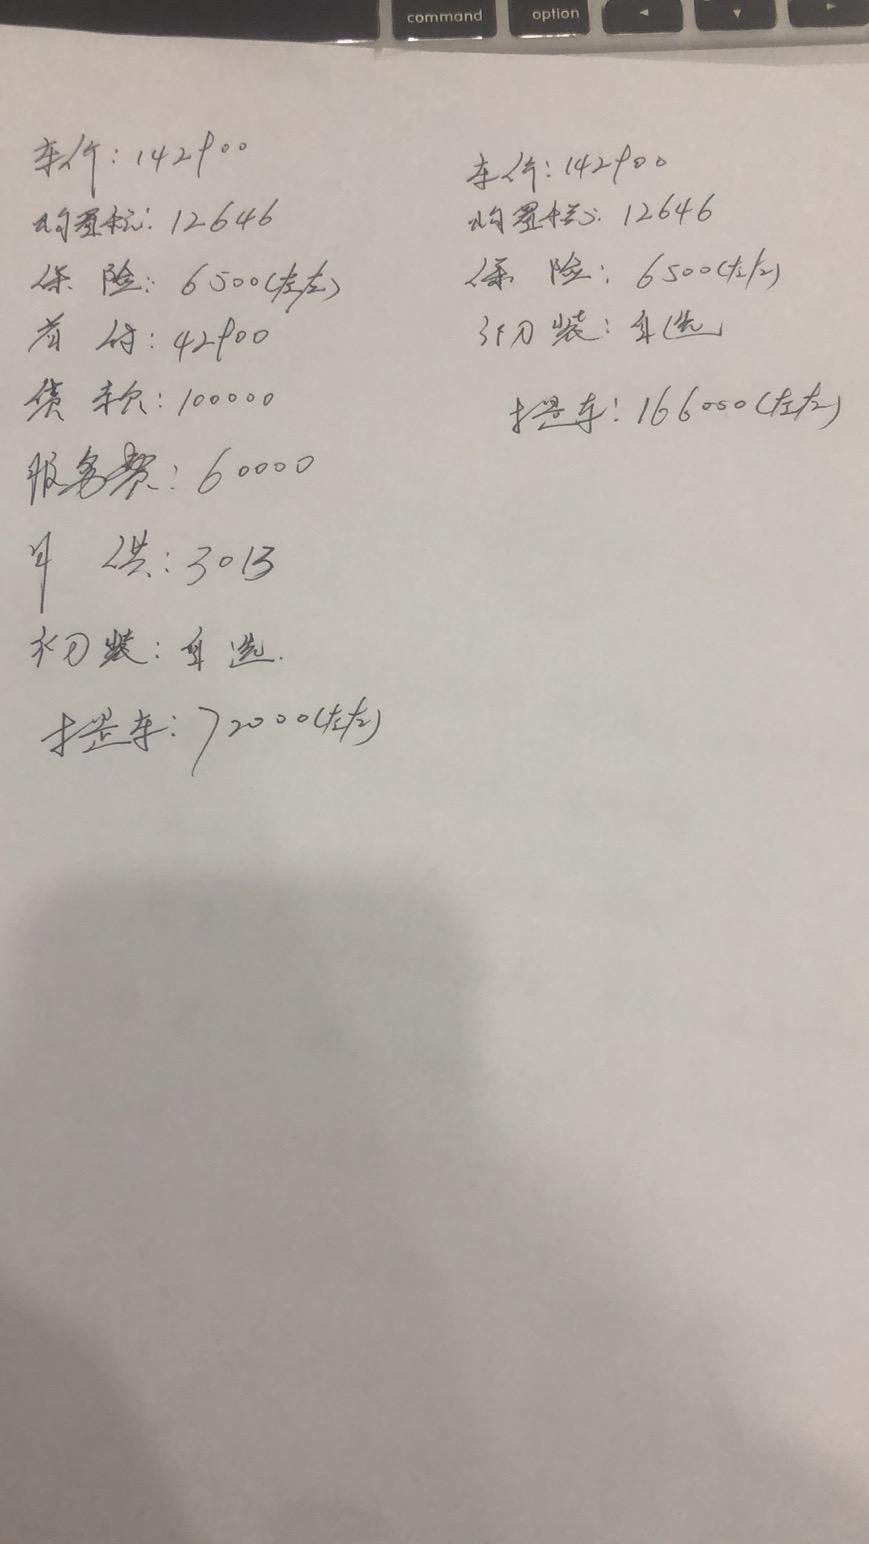 command option
车价: 142900
购置税: 12646
保 险: 6500(左右)
首 付: 42900
贷 款: 100000
服务费: 60000
月 供: 3013
初装: 自选.
提车: 72000(左右)
车价: 142900
购置税: 12646
保 险: 6500(左右)
初装: 自选
提车: 166050(左右)